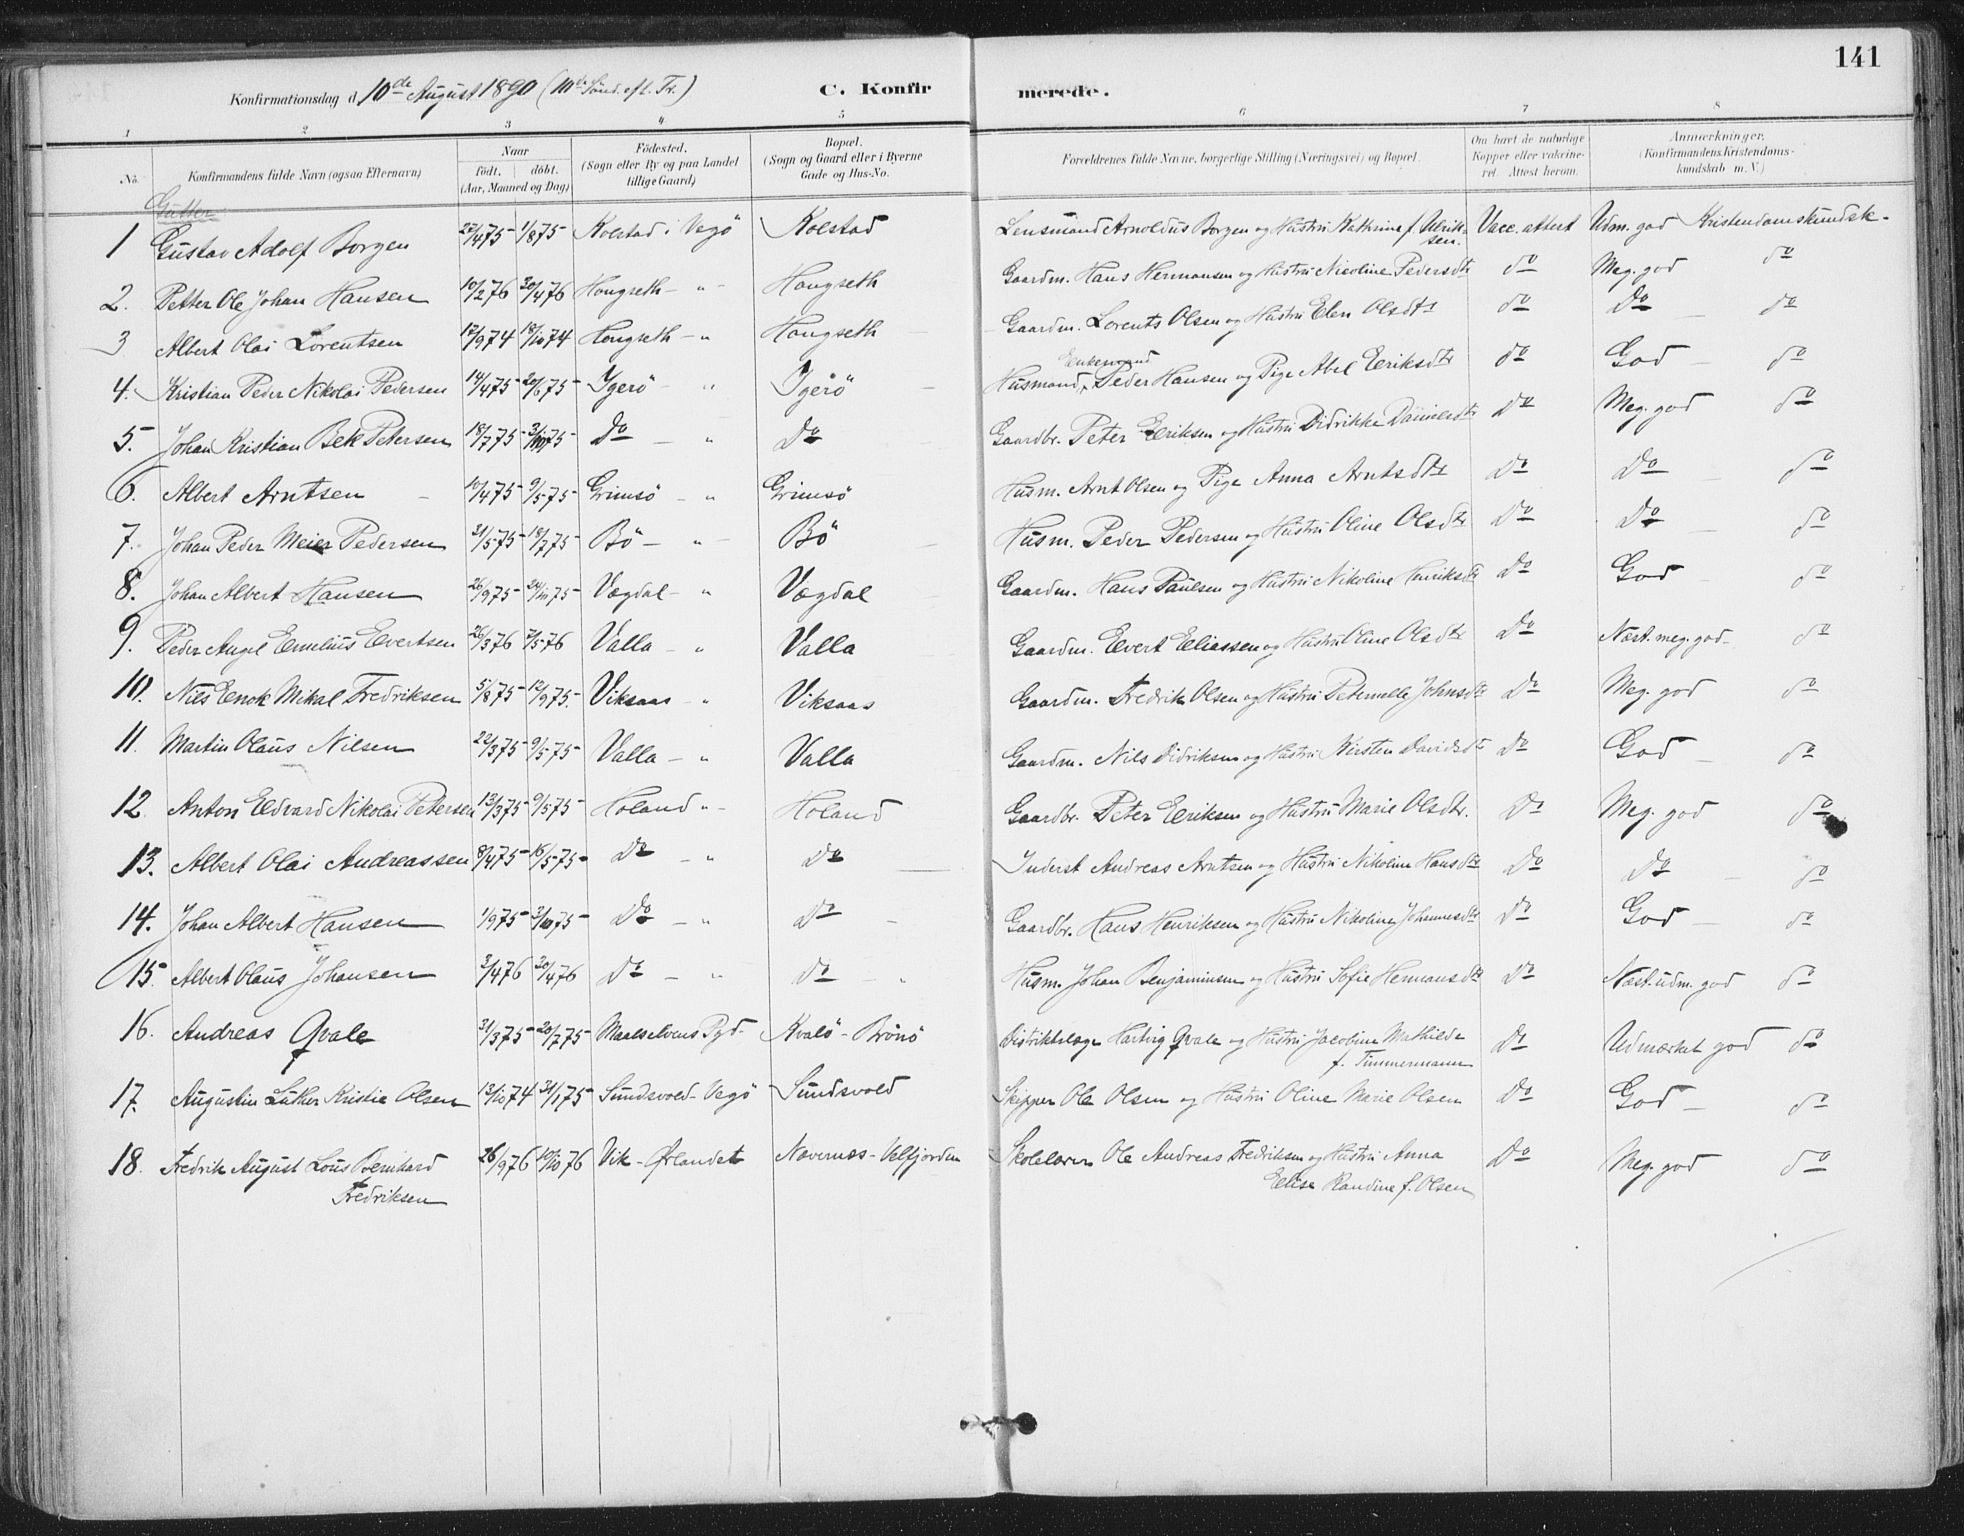 141
Konfirmationsdag d. 10de August 1890 (10de Sönd. eft. Tr.) C. Konfirmerede.
1 2 3 4 5 6 7 8
No. Konfirmandens fulde Navn (ogsaa Efternavn) Naar födt. döbt. (Aar, Maaned og Dag) Födested. (Sogn eller By og paa Landet tillige Gaard) Bopæl. (Sogn og Gaard eller i Byerne Gade og Hus-No. Forældrenes fulde Navne, borgerlige Stilling (Næringsvei) og Bopæl. Om havt de naturlige Kopper eller vakcineret. Attest herom. Anmærkninger. (Konfirmandens Kristendomskundskab m. V.)
Gutter
1 Gustav Adolf Borgen 27/4 75 1/8 75 Kolstad i Vegö Kolstad Lensmand Arnoldus Borgen og Hustru Kathrine f. Ulriksen. Vacc. attert Udm. god Kristendomskundsk-
2. Petter Ole Johan Hansen 10/2 76 20/4 76 Hongseth - " - Hongseth Gaardm. Hans Hermansen og Hustru Nicoline Pedersdtr do Meg. god do
3 Albert Olai Lorentsen 17/9 74 18/10 74 Hongseth - " Hongseth Gaardm. Lorents Olsen og Hustru Elen Olsdtr do Do do
4. Kristian Peder Nikolai Pedersen 14/4 75 20/6 75 Ygerö - " Ygerö Husmand, Enkemand Peder Hansen og Pige Abel Eriksdtr do God do
5. Johan Kristian Bek Petersen 18/7 75 3/10 75 Do - " Do Gaardbr. Peter Eriksen og Hustru Didrikke Danielsdtr Do Meg. god do
6. Albert Arntsen 10/4 75 9/5 75 Grimsö - " Grimsö Husm. Arnt Olsen og Pige Anna Arntsdtr Do Do do
7. Johan Peder Meier Pedersen 31/5 75 18/7 75 Bö - " Bö Husm. Peder Pedersen og Hustru Oline Olsdtr Do Do do
8. Johan Albert Hansen 26/9 75 24/10 75 Vægdal - " Vægdal Gaardm. Hans Paulsen og Hustru Nikoline Henriksdtr Do God do
9. Peder Angel Ermelius Evertsen 26/3 76 7/5 76 Valla - " Valla Gaardm. Evert Eliassen og Hustru Oline Olsdtr Do Næst. meg. god - do
10. Nils Enok Mikal Fredriksen 5/8 75 12/9 75 Viksaas - " Viksaas Gaardm. Fredrik Olsen og Hustru Peternelle Johnsdtr Do Meg. god do
11. Martin Olaus Nilsen 22/3 75 9/5 75 Valla - " Valla Gaardm. Nils Didriksen og Hustru Kirsten Davidsdtr Do God do
12. Anton Edvard Nikolai Petersen 13/3 75 9/5 75 Holand " - Holand Gaardbr. Peter Eriksen og Hustru Marie Olsdtr. Do Meg. god do
13. Albert Olai Andreassen 8/4 75 16/5 75 Do - " Do Inderst Andreas Arntsen og Hustru Nikoline Hansdtr Do Do do
14. Johan Albert Hansen 1/9 75 3/10 75 Do - " Do - Gaardbr. Hans Henriksen og Hustru Nikoline Johannesdtr Do God - do
15. Albert Olaus Johansen 2/4 76 20/4 76 Do - " Do - " Husm. Johan Benjaminsen og Hustru Sofie Hermansdtr Do Næst. udm. god do
16. Andreas Qvale 31/3 75 20/7 75 Maalselvens Pgd. Kvalö - Brönö Distriktslæge Hartvig Qvale og Hustru Jacobine Mathilde f. Timmermann Do Udmærket god do
17. Augustin Luther Kristie Olsen 13/10 74 31/1 75 Sundsvold - Vegö Sundsvold Skipper Ole Olsen og Hustru Oline Marie Olsen Do God - do
18. Fredrik August Lous Bernhard Fredriksen 26/9 76 10/10 76 Vik - Ørlandet Nævernæs - Velfjorden Skolelærer Ole Andreas Fredriksen og Hustru Anna Elise Randine f. Olsen Do Meg. god do